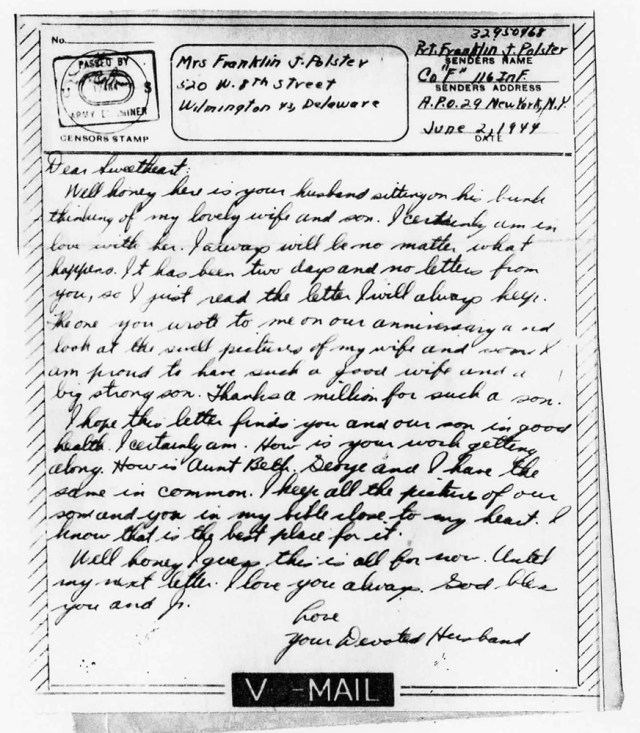 No.
PASSED BY
ARMY EXAMINER
CENSORS STAMP
Mrs Franklin J. Polster
520 W. 8th Street
Wilmington Delaware
32950468
Pvt. Franklin J. Polster
SENDERS NAME
Co "F" 116 Inf.
SENDERS ADDRESS
A.P.O. 29 New York, N.Y.
June 2, 1944
DATE
Dear Sweetheart:
Well honey here is your husband sitting on his bunk
thinking of my lovely wife and son. I certainly am in
love with her. I always will be no matter what
happens. It has been two days and no letters from
you, so I just read the letter I will always keep.
The one you wrote to me on our anniversary and
look at the swell pictures of my wife and I
am proud to have such a good wife and a
big strong son. Thanks a million for such a son.
I hope this letter finds you and our son in good
health. I certainly am. How is your work getting
along. How is Aunt George and I have the
same in common. I keep all the picture of our
son and you in my bible close to my heart. I
know that is the best place for it.
Well honey I guess this is all for now. Until
my next letter. I love you always. God bless
you and Jr.
Love
Your Devoted Husband
V -MAIL